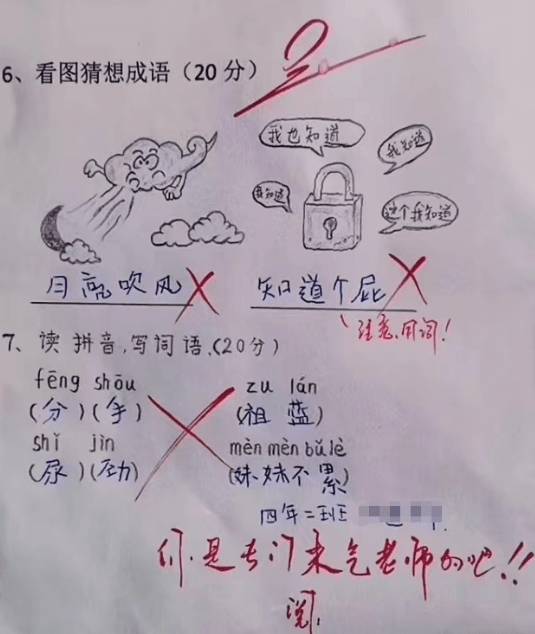 6、看图猜想成语（20分）
我也知道
我知道
我知道
这个我知道
月亮吹风
知道个屁
注意用词！
7、读拼音,写词语、(20分)
fēng shōu
zu lán
(分)(手)
(祖 蓝)
shǐ jìn
mèn mèn bǔ lè
(尿)(劲)
(妹妹不累)
四年二班
你是专门来气老师的吧!!